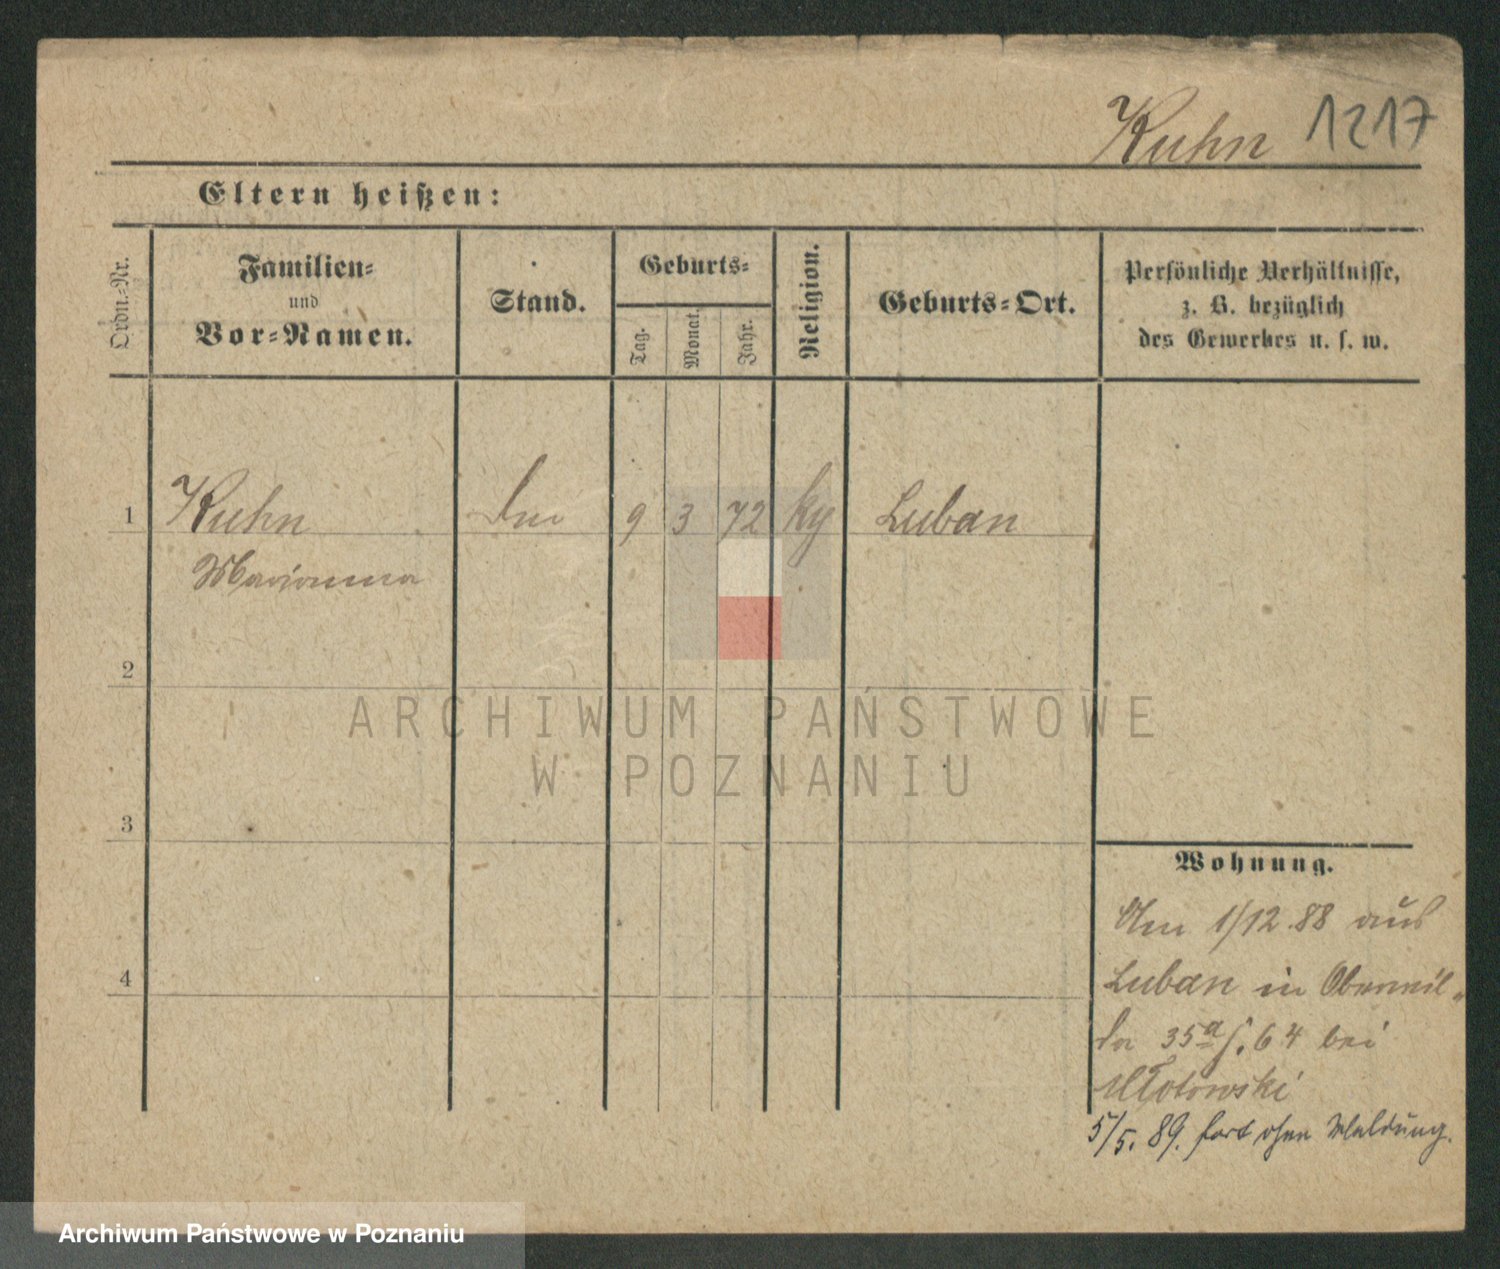 Kuhn 1217
Eltern heißen:
Ordn.-Nr.
Familien-
und
Vor-Namen.
Stand.
Geburts-
Tag.
Monat.
Jahr.
Religion.
Geburts-Ort.
Persönliche Verhältnisse,
z. B. bezüglich
des Gewerbes u. s. w.
1 Kuhn 9 3 72 Luban
Marianna
2
3
4
Wohnung.
Am 1/12.88 aus
Luban in Oberwil-
da 35a f. 64 bei
5/5. 89. fort ohne Meldung.
ARCHIWUM PAŃSTWOWE
W POZNANIU
Archiwum Państwowe w Poznaniu